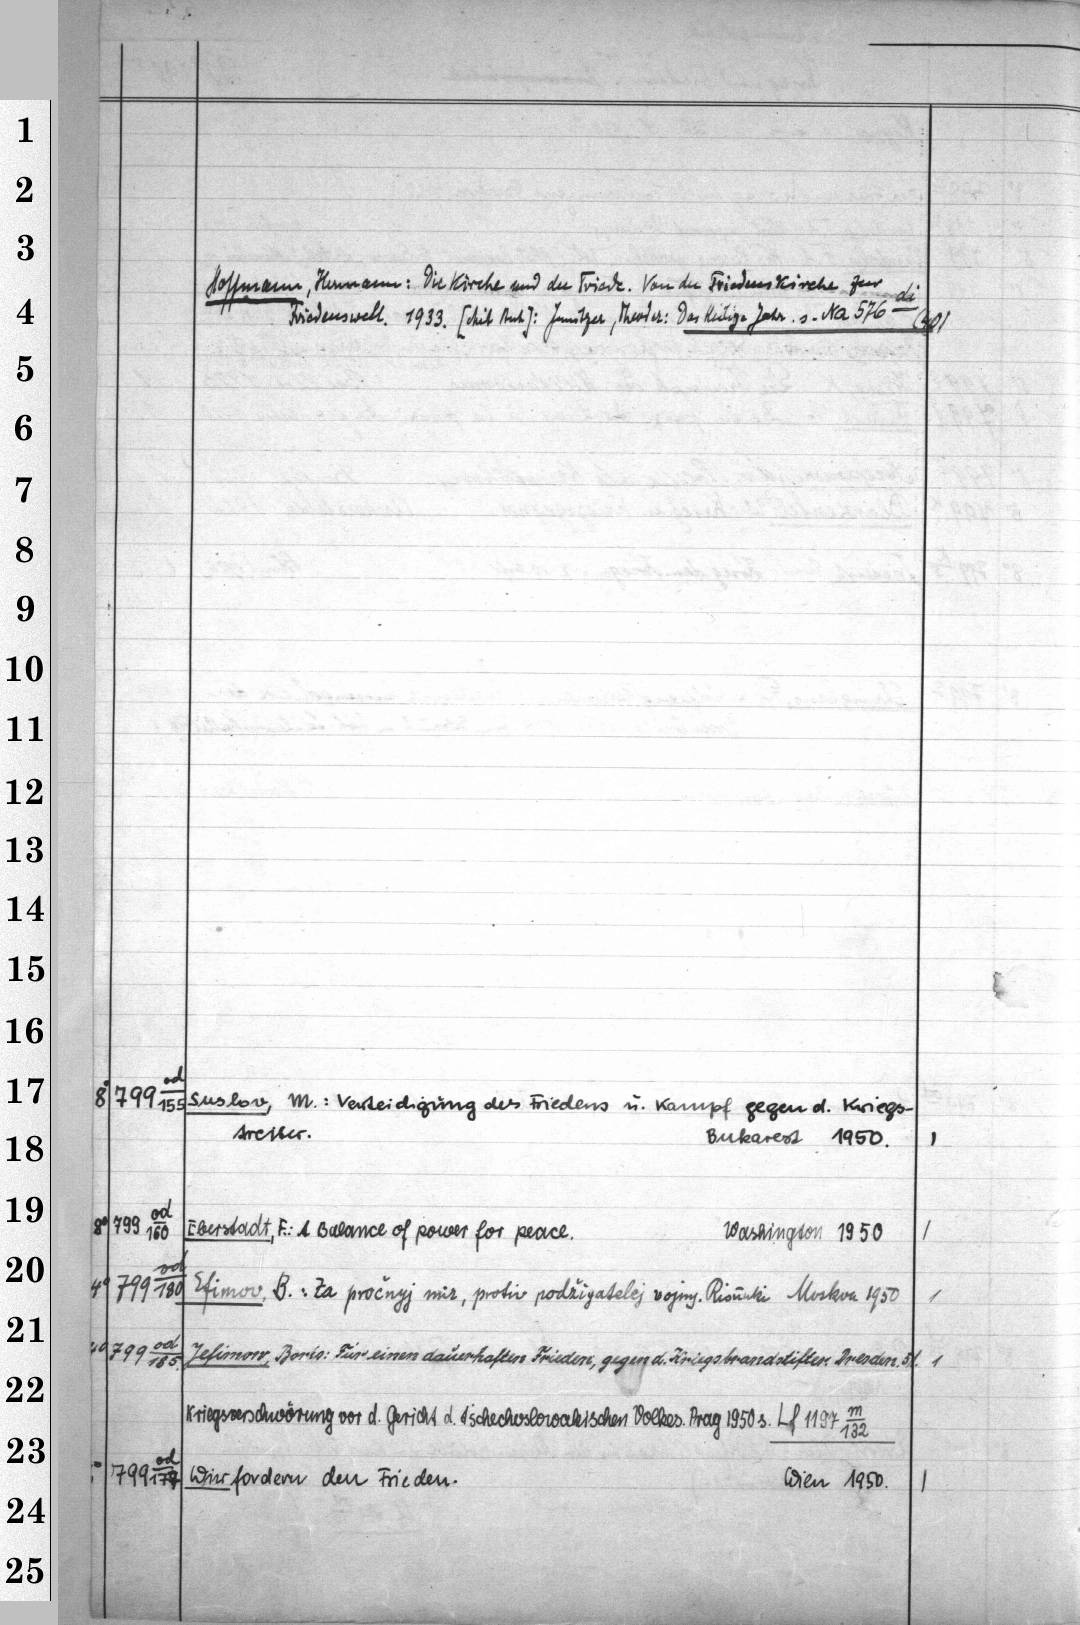 1
2
3
Hoffmann, Hermann: Die Kirche und der Friede. Von der Friedenskirche zur
4
Friedenswelt. 1933. : , Theodor: Das Heilige Jahr. s. Na 576 di
5
6
7
8
9
10
11
12
13
14
15
16
17
8° 799 od/155 Suslov, M.: Verteidigung des Friedens u. Kampf gegen d. Kriegs-
18
Bukarest 1950. 1
19
8° 799 od/160 Eberstadt, F.: A Balance of power for peace. Washington 1950 1
20
4° 799 od/180 Efimov, B.: Za pročnyj mir, protiv podžigatelej vojny. Risunki Moskva 1950 1
21
4° 799 od/185 Jefimow, Boris: Für einen dauerhaften Frieden, gegen d. Kriegsbrandstifter. Dresden. 51. 1
22
Kriegsverschwörung vor d. Gericht d. tschechoslowakischen Volkes. Prag 1950 s. Lf 1197 m/132
23
799 od Wir fordern den Frieden. Wien 1950. 1
24
25